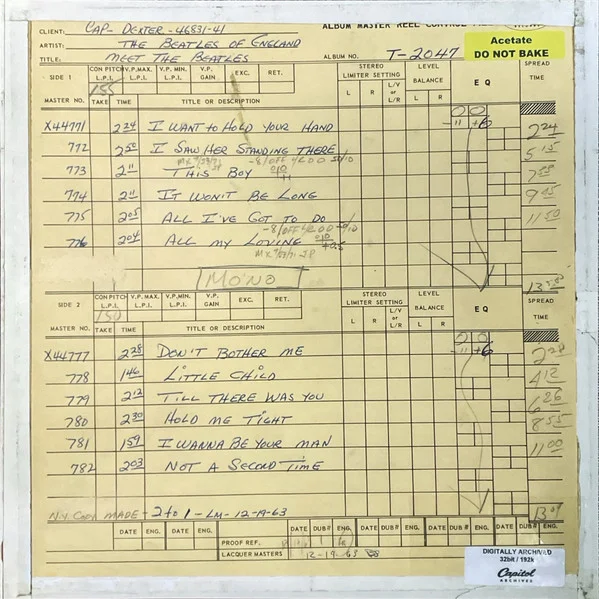 CLIENT: CAP- DEXTER - 46831-41
ALBUM MASTER REEL CONTROL
ARTIST: THE BEATLES OF ENGLAND
TITLE: MEET THE BEATLES
ALBUM NO. T-2047
Acetate
DO NOT BAKE
SIDE 1 CON PITCH L.P.I. V.P. MAX. L.P.I. V.P. MIN. L.P.I. V.P. GAIN EXC. RET. STEREO LIMITER SETTING LEVEL BALANCE EQ SPREAD TIME
155
MASTER NO. TAKE TIME TITLE OR DESCRIPTION L R L/V or L/R L R
-11 +6
X44771 2 24 I WANT TO HOLD YOUR HAND 2 24
772 2 50 I SAW HER STANDING THERE 5 15
773 2 11 THIS BOY
774 2 11 IT WON'T BE LONG
775 2 05 ALL I'VE GOT TO DO 11 50
776 2 04 ALL MY LOVING
MONO
SIDE 2 CON PITCH L.P.I. V.P. MAX. L.P.I. V.P. MIN. L.P.I. V.P. GAIN EXC. RET. STEREO LIMITER SETTING LEVEL BALANCE EQ SPREAD TIME
150
MASTER NO. TAKE TIME TITLE OR DESCRIPTION L R L/V or L/R L R
-11 +6
X44777 2 28 DON'T BOTHER ME 2 28
778 1 46 LITTLE CHILD 4 12
779 2 12 TILL THERE WAS YOU 6 26
780 2 30 HOLD ME TIGHT 8 55
781 1 59 I WANNA BE YOUR MAN 11 00
782 2 03 NOT A SECOND TIME
N.Y. COPY MADE - 2 to 1 - LM - 12-19-63 13 09
DATE ENG. DATE ENG. DATE DUB# ENG. DATE DUB# ENG. DATE DUB# ENG.
PROOF REF.
LACQUER MASTERS 12-19-63
DIGITALLY ARCHIVED
32bit / 192k
Capitol
ARCHIVES